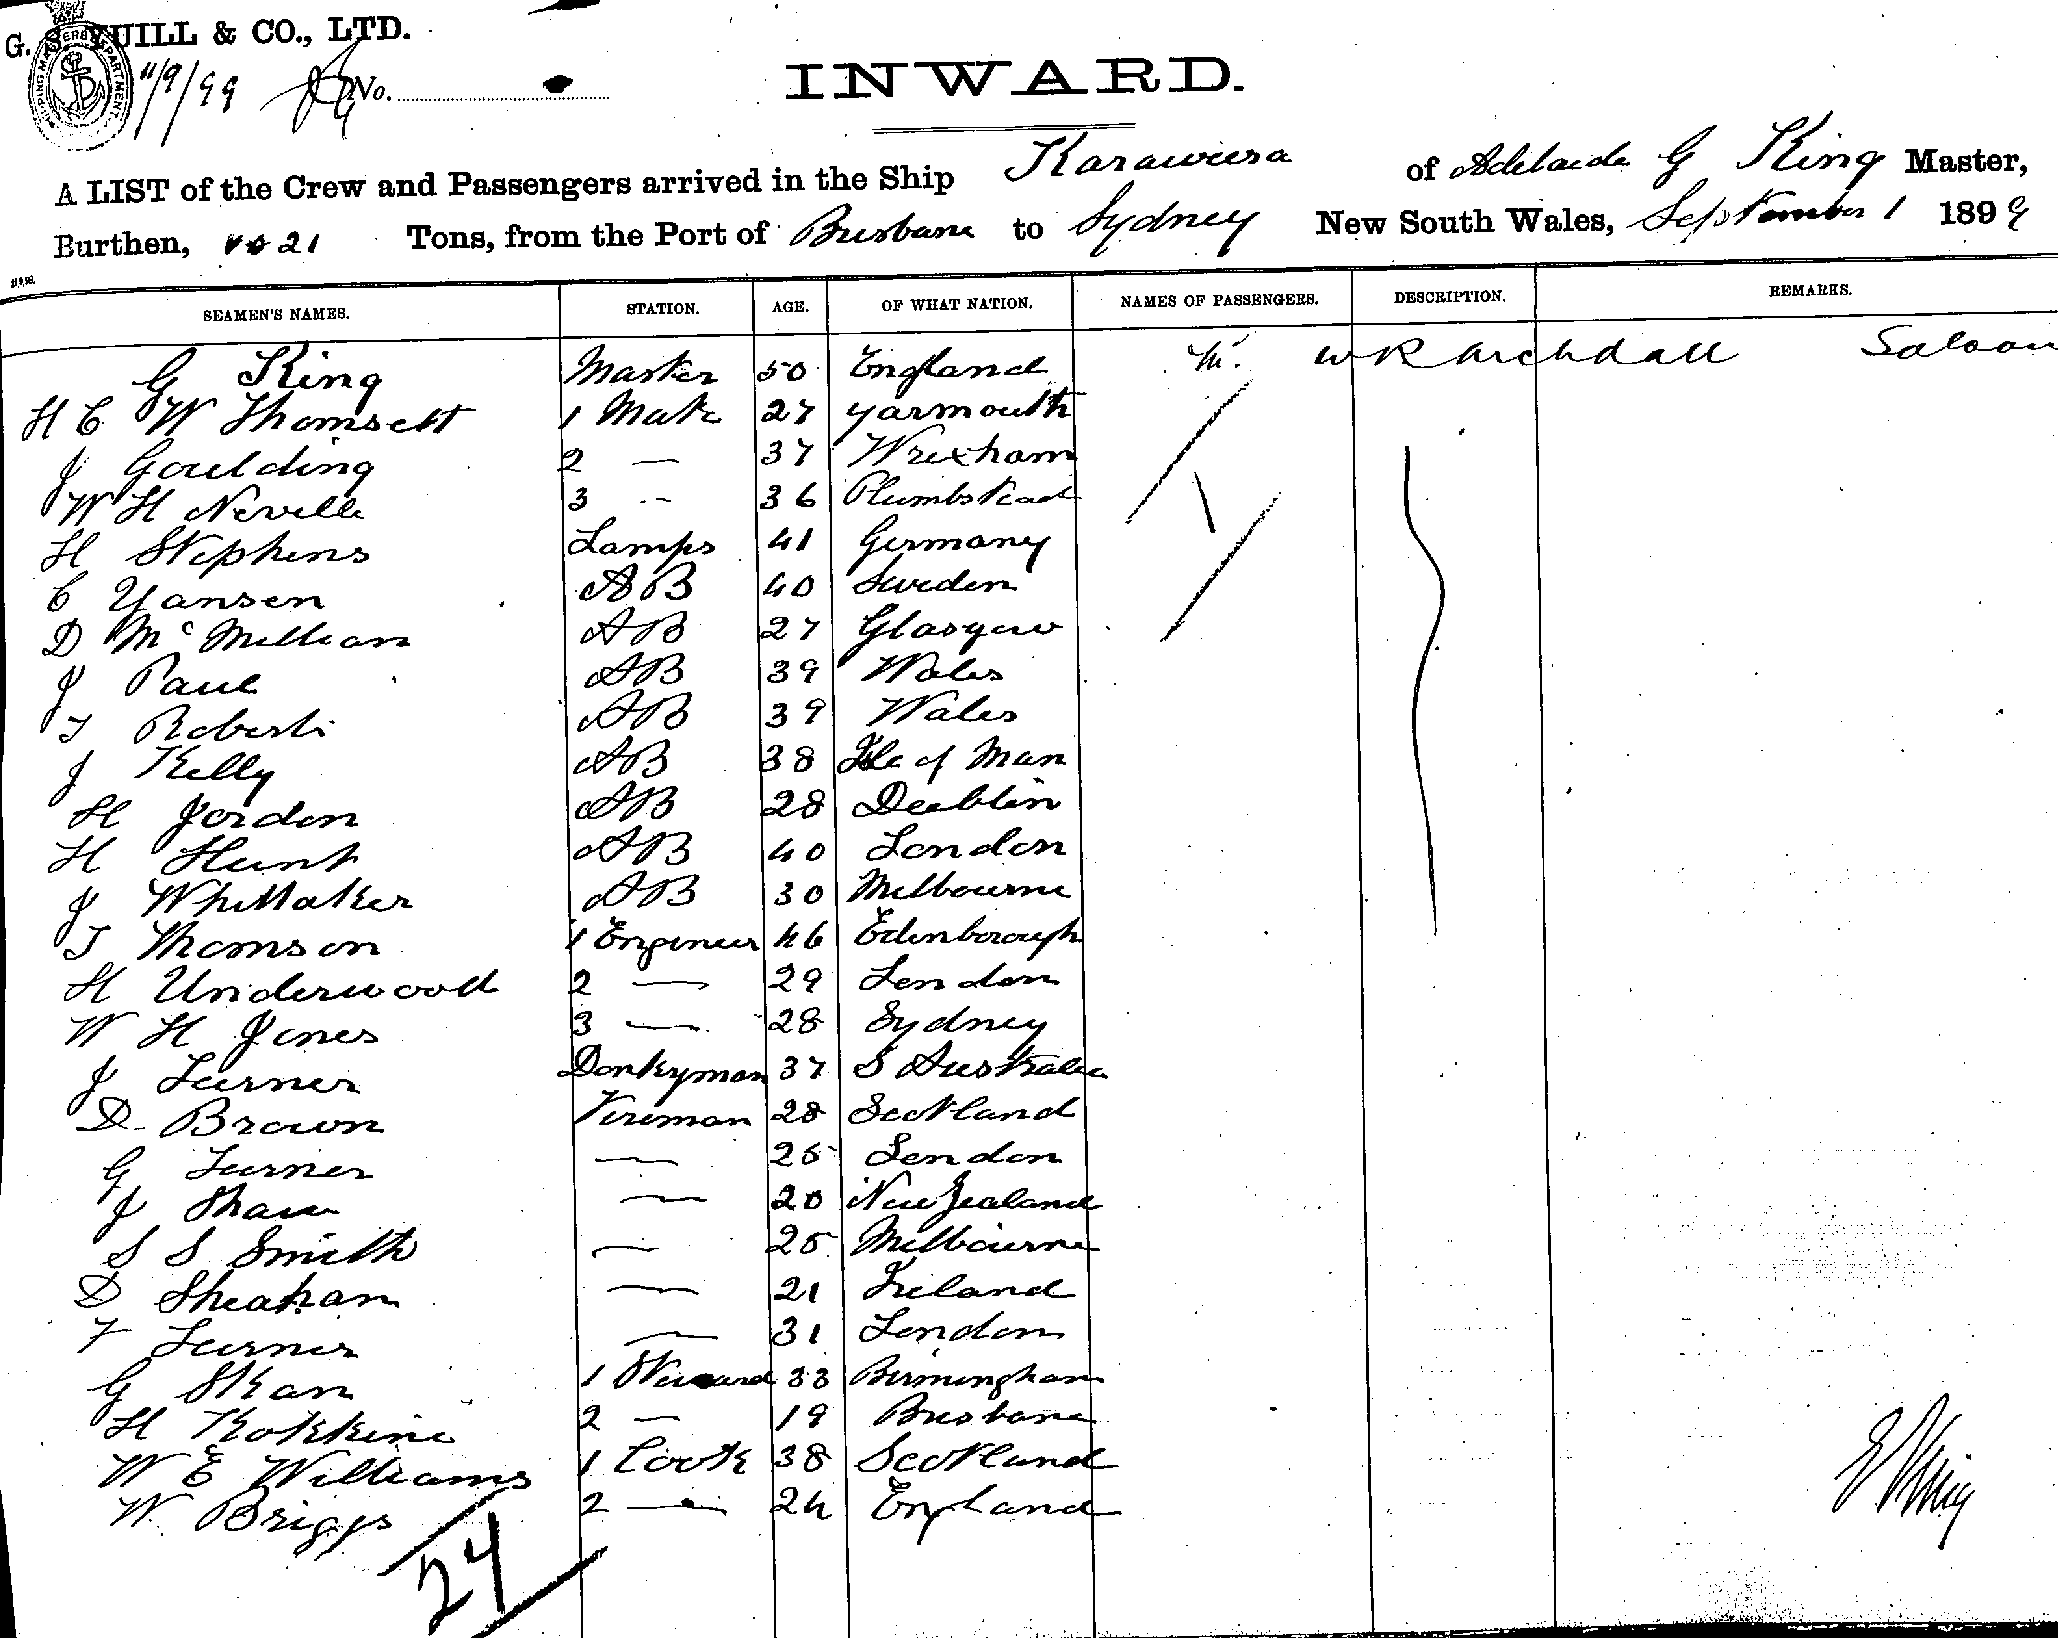 G. S. YUILL & CO., LTD.
11/9/99 No.
INWARD.
A LIST of the Crew and Passengers arrived in the Ship Karaweera of Adelaide G King Master,
Burthen, Tons, from the Port of Brisbane to Sydney New South Wales, September 1 1899
SEAMEN'S NAMES. STATION. AGE. OF WHAT NATION. NAMES OF PASSENGERS. DESCRIPTION. REMARKS.
G King Master 50 England Mr. W R Archdall Saloon
H C W Thomsett 1 Mate 27 Yarmouth
J Goulding 2 — 37 Wrexham
W H Neville 3 -- 36 Plumbstead
H Stephens Lamps 41 Germany
C Yansen AB 40 Sweden
D McMillian AB 27 Glasgow
J Paul AB 39 Wales
T Roberts AB 39 Wales
J Kelly AB 38 Isle of Man
H Jordon AB 28 Dublin
H Hunt AB 40 London
J Whittaker AB 30 Melbourne
T Thomson 1 Engineer 46 Edenborough
H Underwood 2 — 29 London
W H Jones 3 — 28 Sydney
J Turner Donkyman 37 S Australia
D Brown Fireman 28 Scotland
G Turner — 25 London
J Shaw — 20 New Zealand
S S Smith — 25 Melbourne
D Sheahan — 21 Ireland
F Turner — 31 London
G Skan 1 Steward 33 Birmingham
H 2 — 19 Brisbane
W E Williams 1 Cook 38 Scotland
W Briggs 2 — 24 England
27
G King